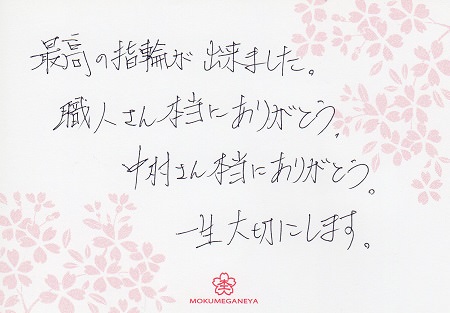 最高の指輪が出来ました。
職人さん本当にありがとう。
中村さん本当にありがとう。
一生大切にします。
MOKUMEGANEYA